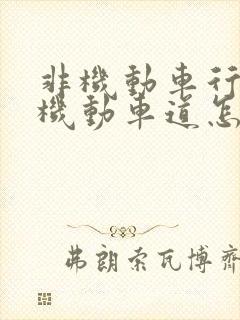 非機動車行
機動車道怎
弗朗索瓦博齊